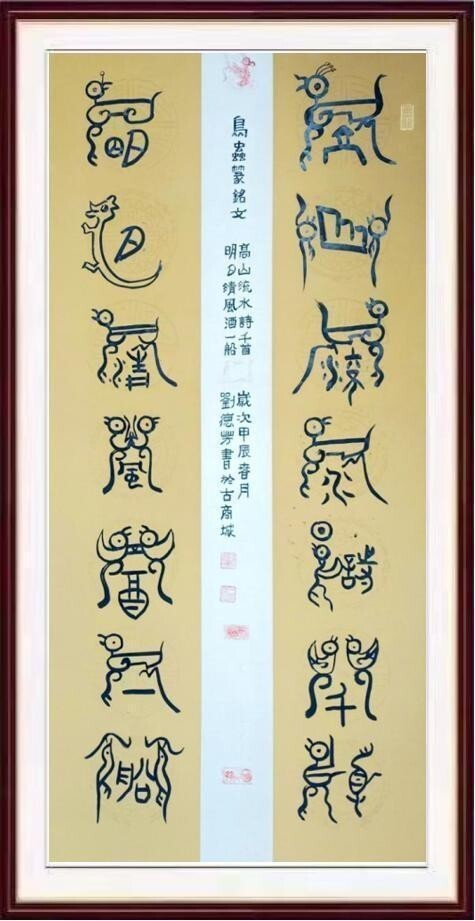 高山流水詩千首
鳥蟲篆銘文
高山流水詩千首
明月清風酒一船
歲次甲辰春月
劉德芳書於古商城
明月清風酒一船